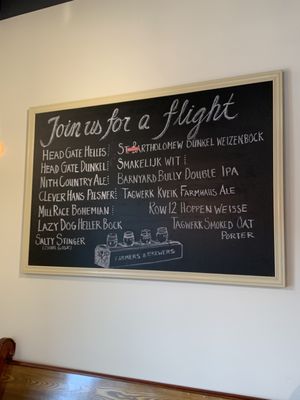 Join us for a flight
Head Gate Helles
Head Gate Dunkel
Nith Country Ale
Clever Hans Pilsner
Mill Race Bohemian
Lazy Dog Heller Bock
Salty Stinger
St. Bartholomew Dunkel Weizenbock
Smakelijk Wit
Barnyard Bully Double IPA
Tagwerk Kveik Farmhaus Ale
Row 12 Hoppen Weisse
Tagwerk Smoked Oat
Porter
Farmers & Brewers